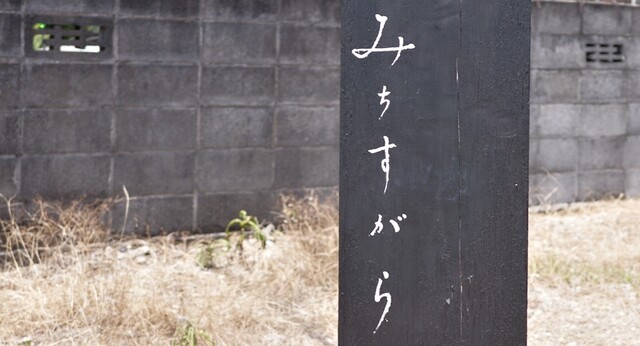 みちすがら